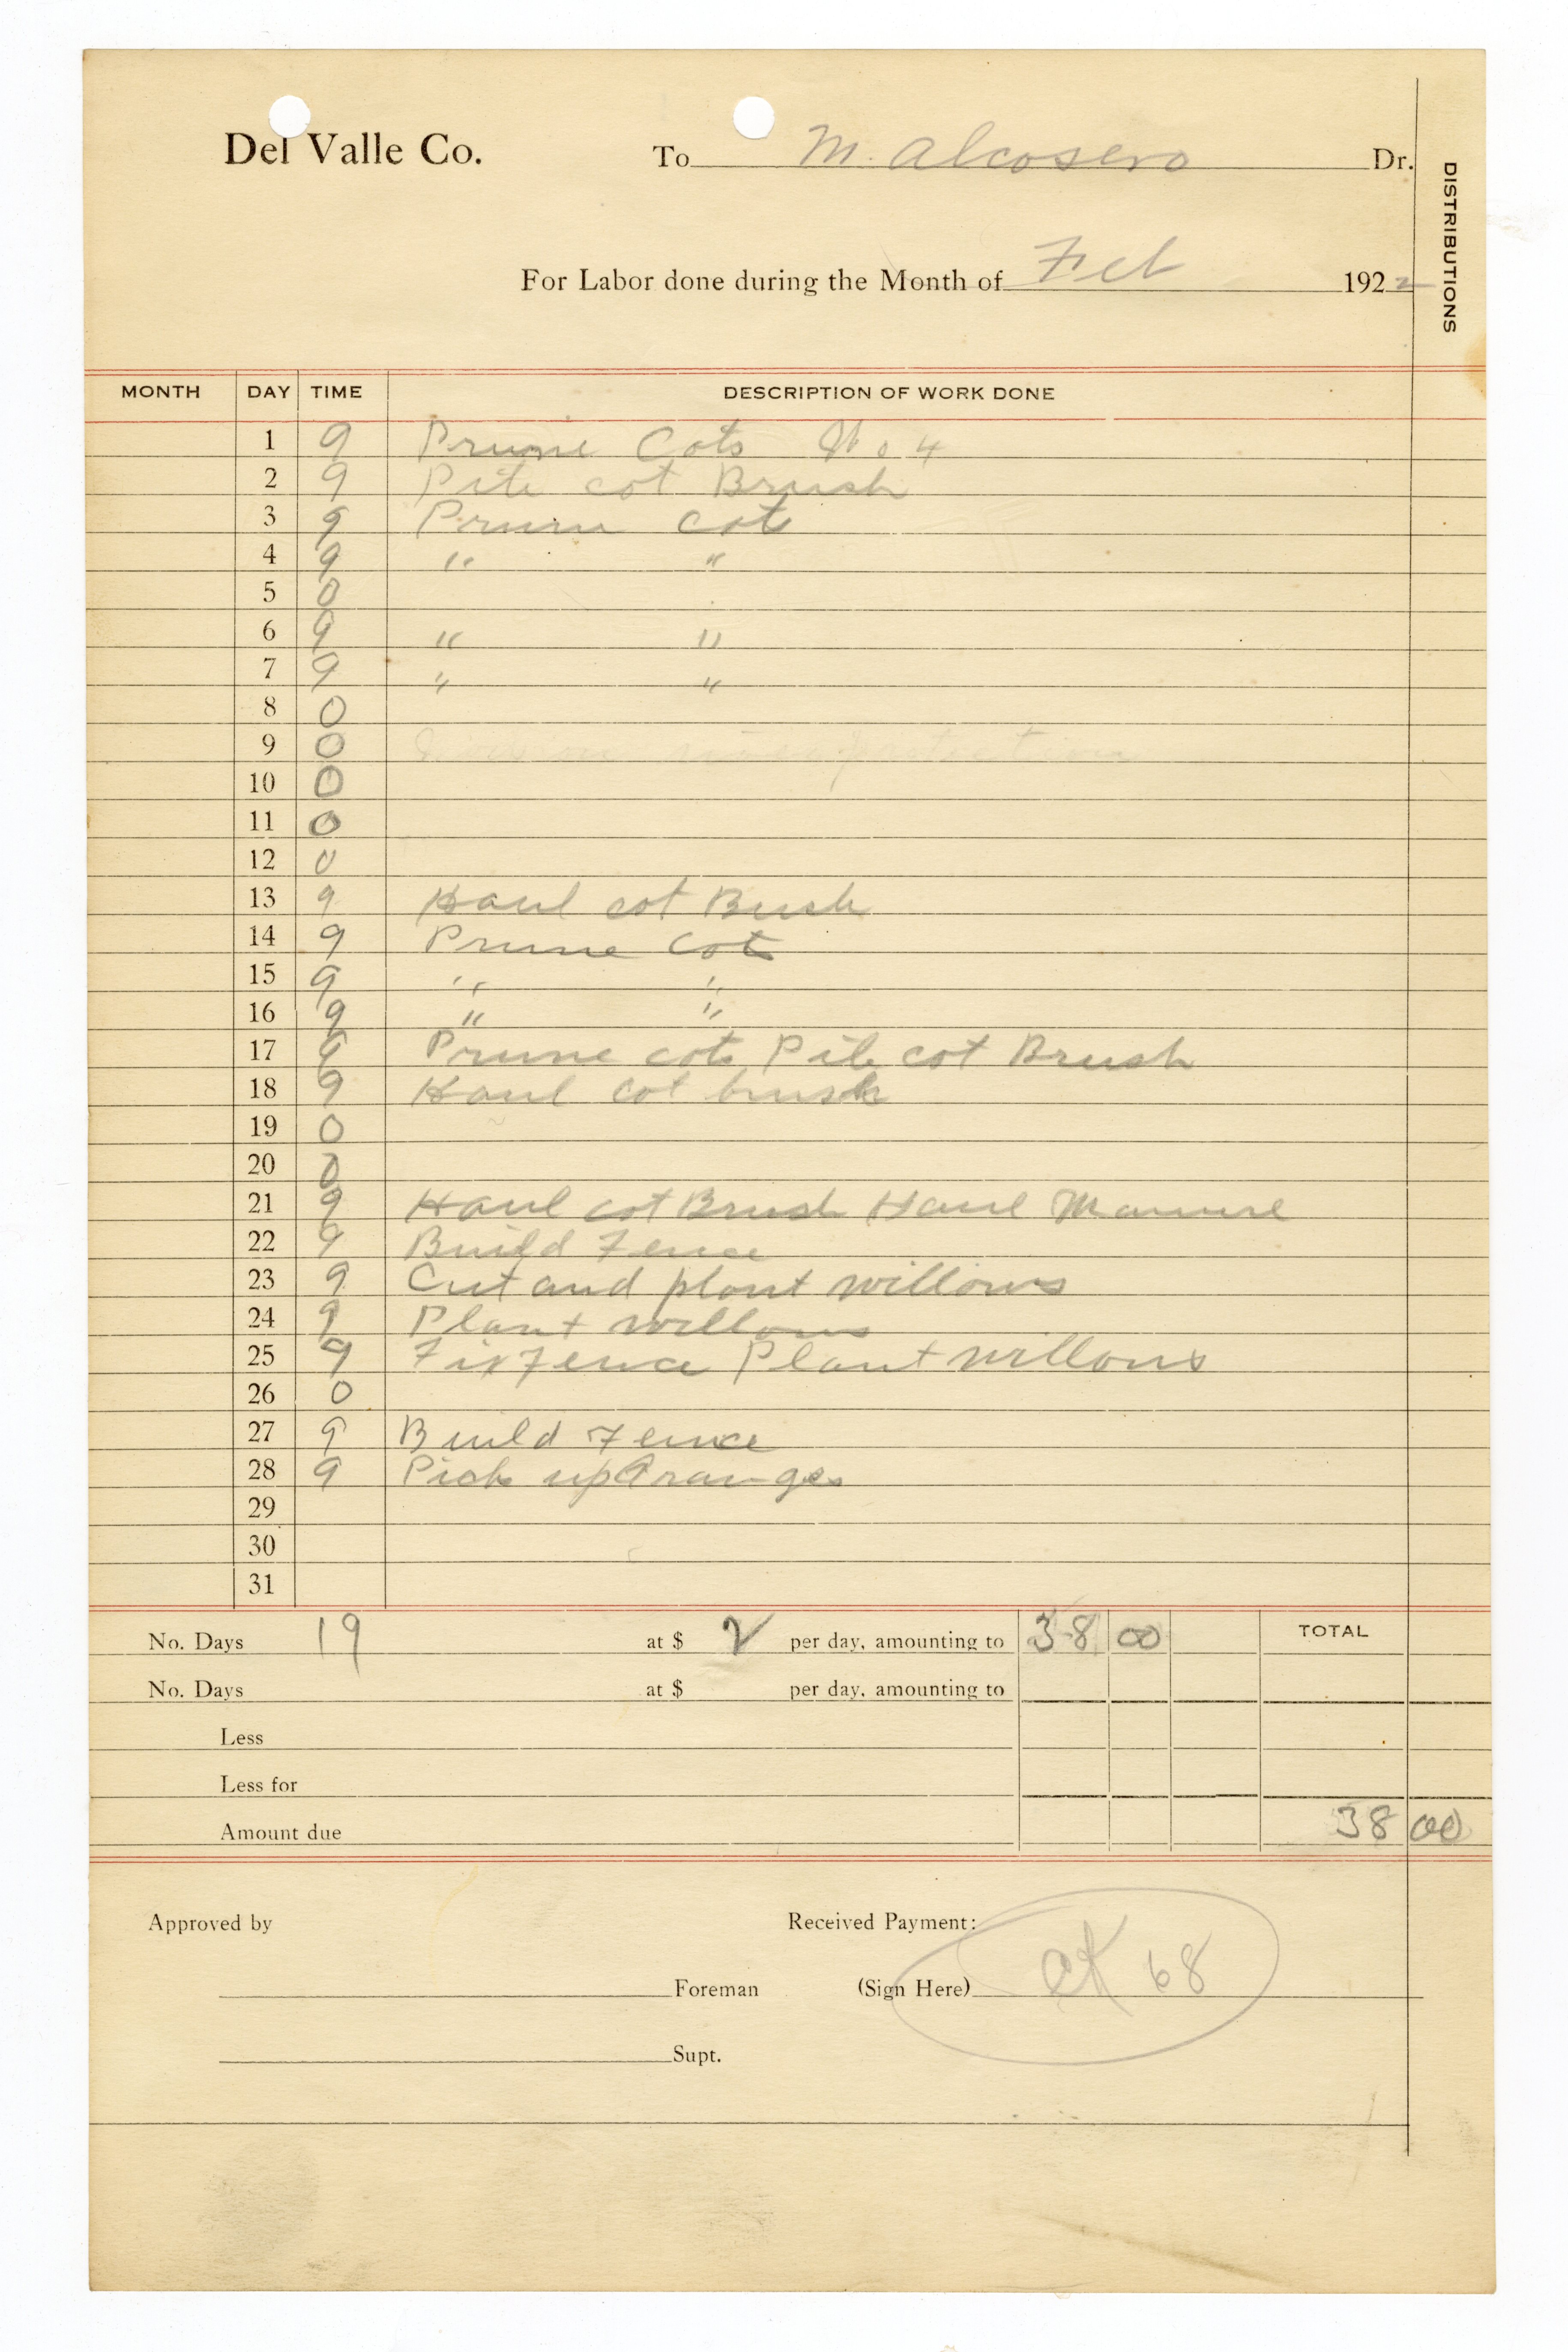 Del Valle Co. To M. Alcosero Dr.
DISTRIBUTIONS
For Labor done during the Month of Feb 1922
MONTH DAY TIME DESCRIPTION OF WORK DONE
1 9 Prune Cots No 4
2 9 Pile cot Brush
3 9 Prune cots
4 9 " "
5 0
6 9 " "
7 9 " "
8 0
9 0
10 0
11 0
12 0
13 9 Haul cot Bush
14 9 Prune Cots
15 9 " "
16 9 " "
17 9 Prune cots Pile cot Brush
18 9 Haul Cot brush
19 0
20 0
21 9 Haul cot Brush Haul Manure
22 9 Build Fence
23 9 Cut and plant willows
24 9 Plant willows
25 9 Fix Fence Plant willows
26 0
27 9 Build Fence
28 9 Pick up Oranges
29
30
31
No. Days 19 at $ 2 per day, amounting to 38 00 TOTAL
No. Days at $ per day, amounting to
Less
Less for
Amount due 38 00
Approved by Received Payment:
Foreman (Sign Here) CK 68
Supt.